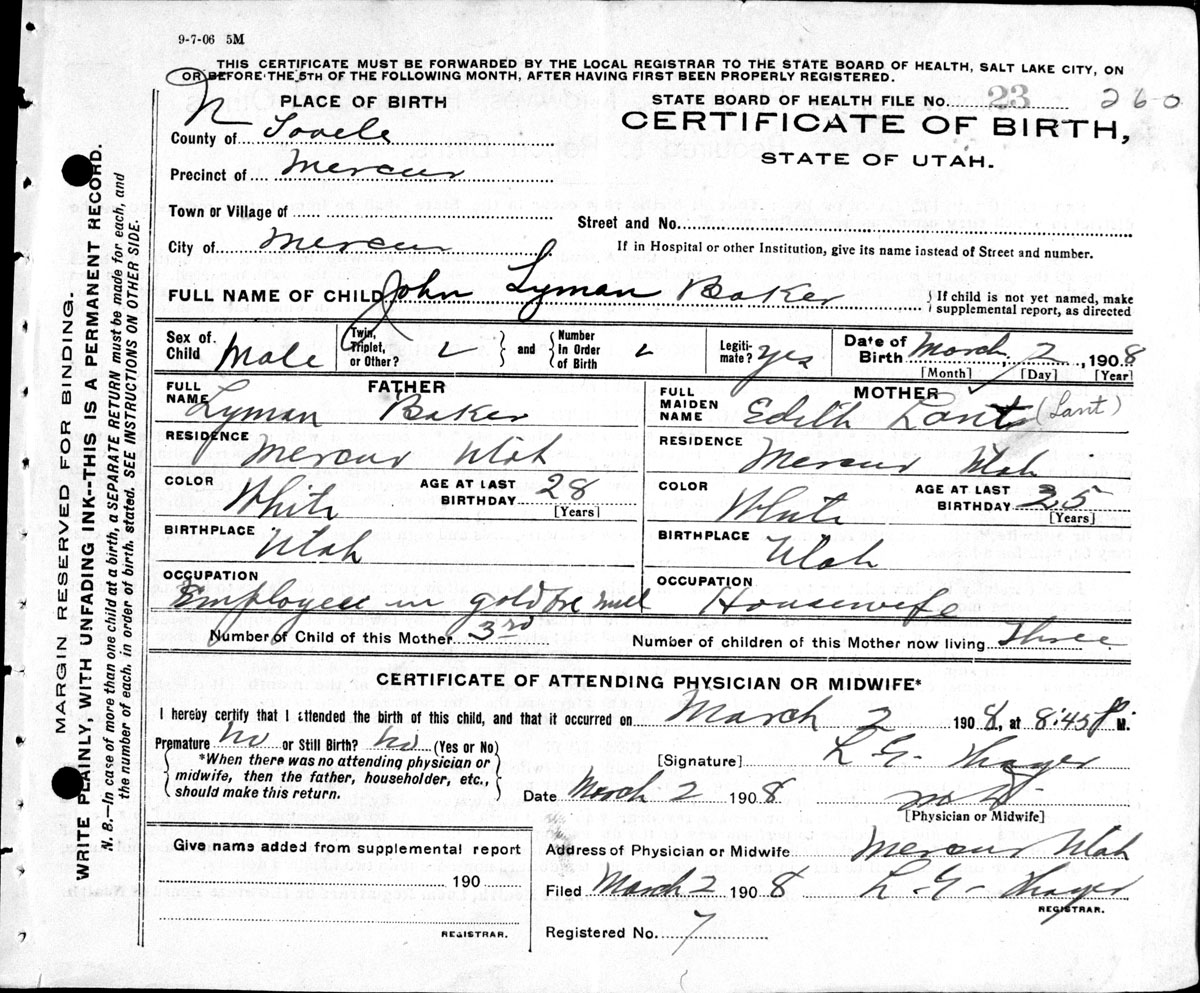 9-7-06 5M
THIS CERTIFICATE MUST BE FORWARDED BY THE LOCAL REGISTRAR TO THE STATE BOARD OF HEALTH, SALT LAKE CITY, ON
OR BEFORE THE 5TH OF THE FOLLOWING MONTH, AFTER HAVING FIRST BEEN PROPERLY REGISTERED.
N PLACE OF BIRTH
STATE BOARD OF HEALTH FILE NO. 23 260
CERTIFICATE OF BIRTH,
STATE OF UTAH.
County of Tooele
Precinct of Mercur
Town or Village of
Street and No.
City of Mercur
If in Hospital or other Institution, give its name instead of Street and number.
FULL NAME OF CHILD John Lyman Baker
If child is not yet named, make
supplemental report, as directed
Sex of Child Male
Twin, Triplet, or Other?
and
Number In Order of Birth
Legitimate? yes
Date of Birth March 2 1908
[Month] [Day] [Year]
FATHER
FULL NAME Lyman Baker
RESIDENCE Mercur Utah
COLOR White
AGE AT LAST BIRTHDAY 28 [Years]
BIRTHPLACE Utah
OCCUPATION Employee in gold ore mill
MOTHER
FULL MAIDEN NAME Edith Lant (Lant)
RESIDENCE Mercur Utah
COLOR White
AGE AT LAST BIRTHDAY 25 [Years]
BIRTHPLACE Utah
OCCUPATION Housewife
Number of Child of this Mother 3rd
Number of children of this Mother now living Three
CERTIFICATE OF ATTENDING PHYSICIAN OR MIDWIFE*
I hereby certify that I attended the birth of this child, and that it occurred on March 2 1908, at 8:45 P M.
Premature No or Still Birth? No (Yes or No)
*When there was no attending physician or
midwife, then the father, householder, etc.,
should make this return.
[Signature] L. G. Thayer
Date March 2 1908 M D
[Physician or Midwife]
Give name added from supplemental report
190
REGISTRAR.
Address of Physician or Midwife Mercur Utah
Filed March 2 1908 L. G. Thayer
REGISTRAR.
Registered No. 7
MARGIN RESERVED FOR BINDING.
WRITE PLAINLY, WITH UNFADING INK--THIS IS A PERMANENT RECORD.
N. B.—In case of more than one child at a birth, a SEPARATE RETURN must be made for each, and
the number of each, in order of birth, stated. SEE INSTRUCTIONS ON OTHER SIDE.